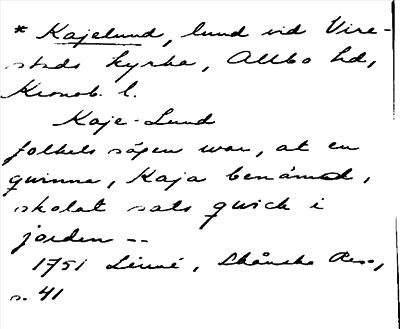 * Kajelund, lund vid Vire-
stads kyrka, Allbo hd,
Kronob. l.
Kaje-Lund
folkets sägen war, at en
quinna, Kaja benämd,
skolat sats quick i
jorden --
1751 Linné, Skånska Resa,
s. 41